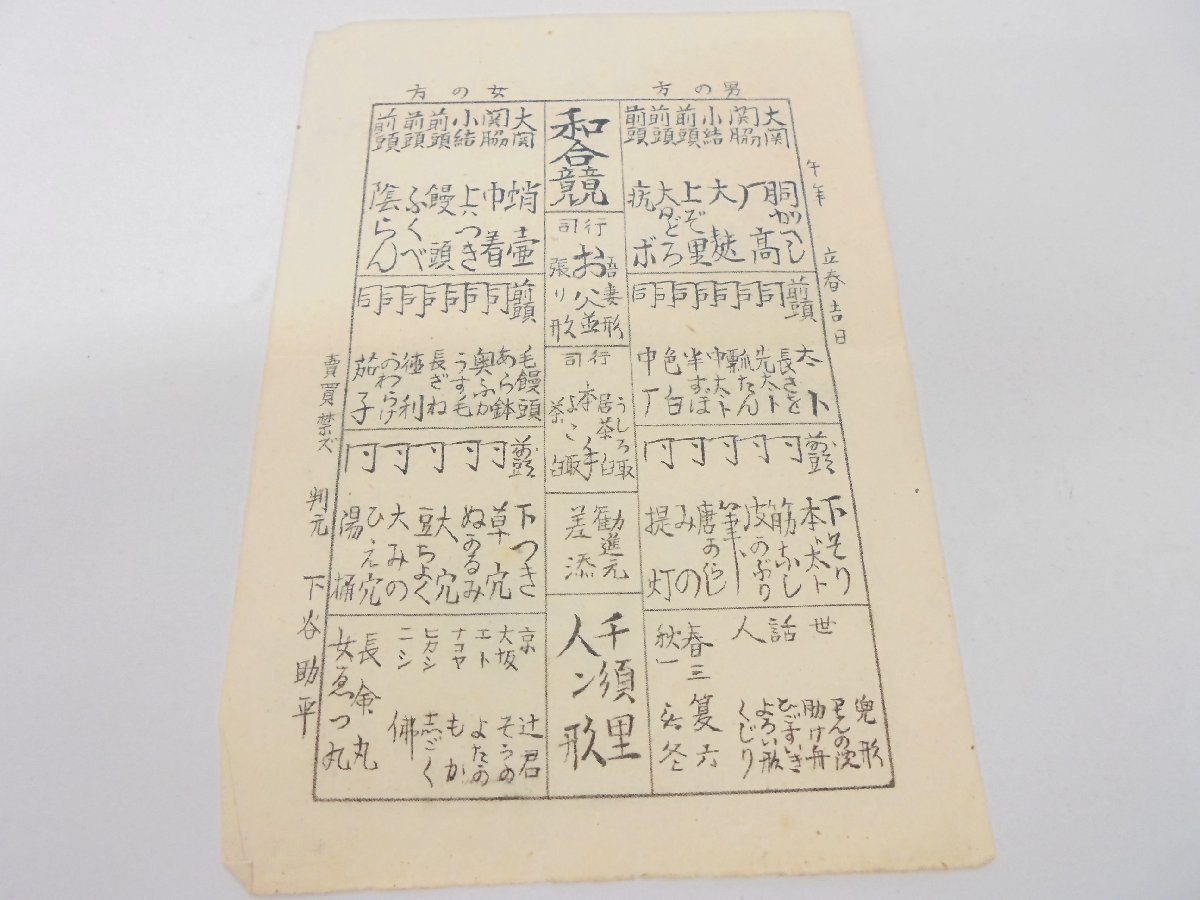 男の方
午年 立春吉日
大関 胴がへし
関脇 厂高
小結 大麩
前頭 上ぞり
前頭
前頭 疣ボ
前頭 太ト
同 長きを
同 先太ト
同 瓢たん
同 中太ト
同 半ずぼ
同 色白
同 中丁
前頭 下そり
本太ト
筋なし
皮かぶり
筆ト
唐がらし
みの
提灯
世話人
兜形
助け舟
ひごずいき
よろい形
くじり
春三 夏六
秋一
和合競
行司
吾妻形
お公並
張り形
行司
うしろ取
居茶臼
本手
よこ取
茶臼
勧進元
差添
千須里
人ン形
女の方
大関 蛸壷
関脇 巾着
小結 上つき
前頭 饅頭
前頭 ふくべ
前頭 陰らん
前頭 毛饅頭
同 あら鉢
同 奥ふか
同 うす毛
同 長ざね
同 徳利
同
同 茄子
前頭 下つき
草穴
ぬかるみ
大穴
豆ちよく
大みの
ひえ穴
湯桶
京 辻君
大坂 そうか
エト よたか
ナコヤ もか
ヒカシ 志ごく
ニシ 佛
長命丸
女ゑつ丸
賣買禁ズ
判元 下谷助平